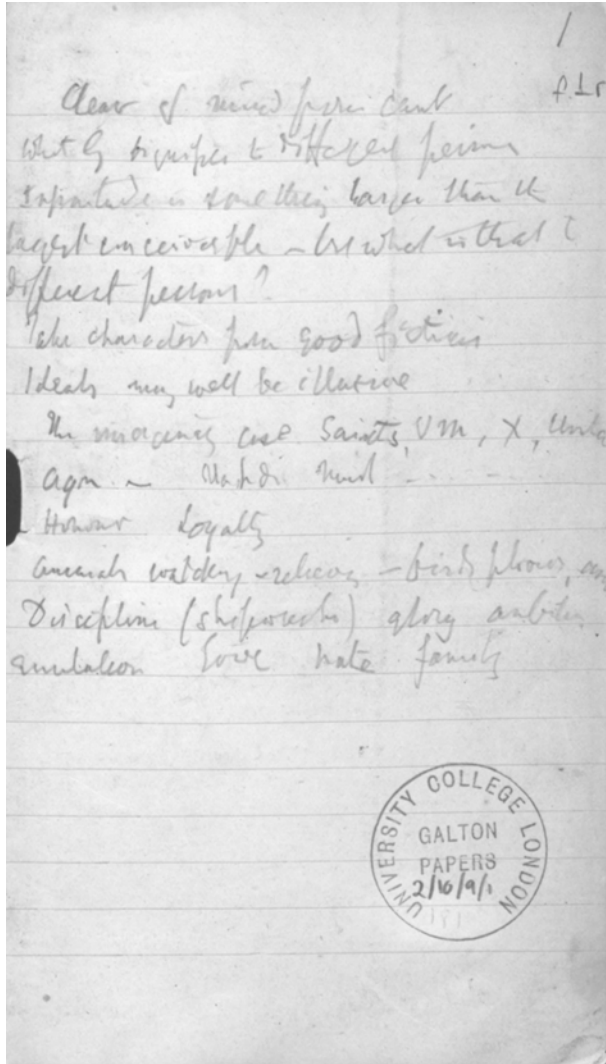 1
f.1r
Clear of mind from cant
what G signifies to different persons
Infinitude is something larger than the
largest conceivable – but what is that to
different persons?
Take characters from good fictions
Ideals may well be illusive
The imaginary case Saints, VM, X,
Agn – Mahdi
Honour Loyalty
animals watching – relieving – birds
Discipline (shipwrecks) glory ambition
emulation love hate family
UNIVERSITY COLLEGE LONDON
GALTON
PAPERS
2/10/9/1